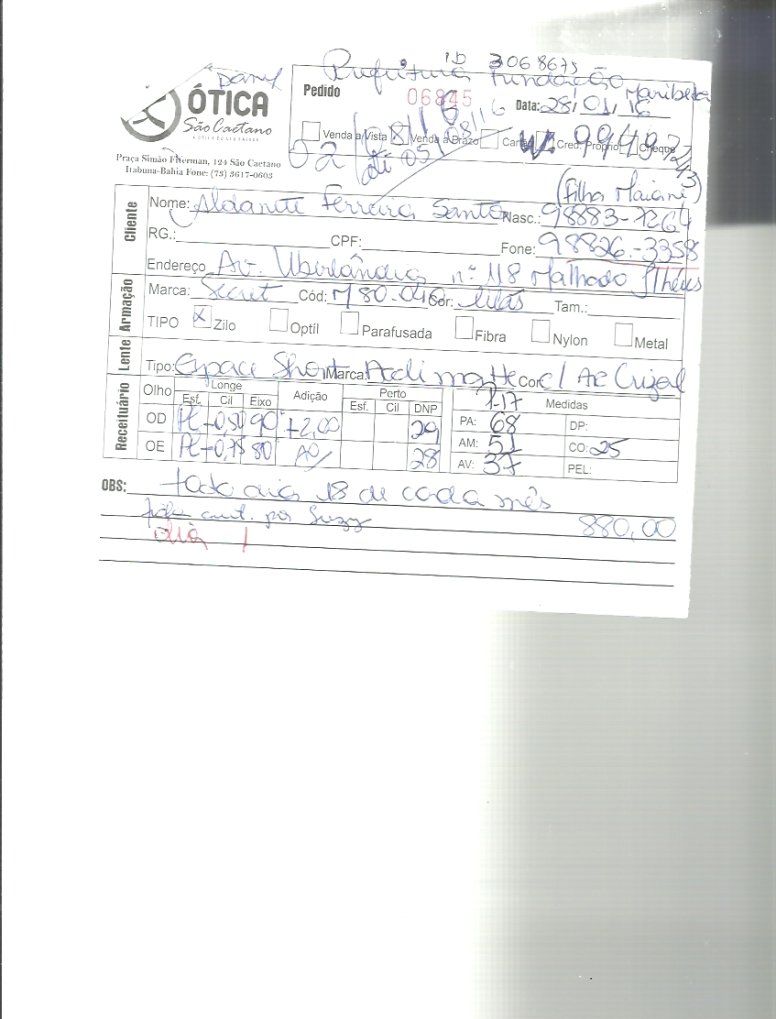 ID 3068675
Prefeitura Fundação Maribela
ÓTICA
São Caetano
Pedido 06845 Data: 28/01/16
Venda a Vista X Venda a Prazo Cartão Cred. Próprio Cheque
02 até 05/08/16
Praça Simão Fiterman, 124 São Caetano
Itabuna-Bahia Fone: (73) 3617-0603
Cliente
Nome: Ferreira Santos Nasc.: 98883-7264
RG.: CPF: Fone: 98826-3358
Endereço Av. Uberlândia nº 118 Malhado Ilhéus
Armação
Marca: Secret Cód: M80.046 Cor: Tam.:
TIPO X Zilo Optíl Parafusada Fibra Nylon Metal
Lente
Tipo: Space Short Marca: Cor: c/ AR Crizal
Receituário
Olho Longe Adição Perto Medidas
Esf. Cil Eixo Esf. Cil DNP
OD PL -0,50 90° +2,00 29 PA: 68 DP:
OE PL -0,75 80 AO 28 AM: 51 CO: 25
AV: 37 PEL:
OBS: todo dia 18 de cada mês
por Suzy 880,00
dia 1